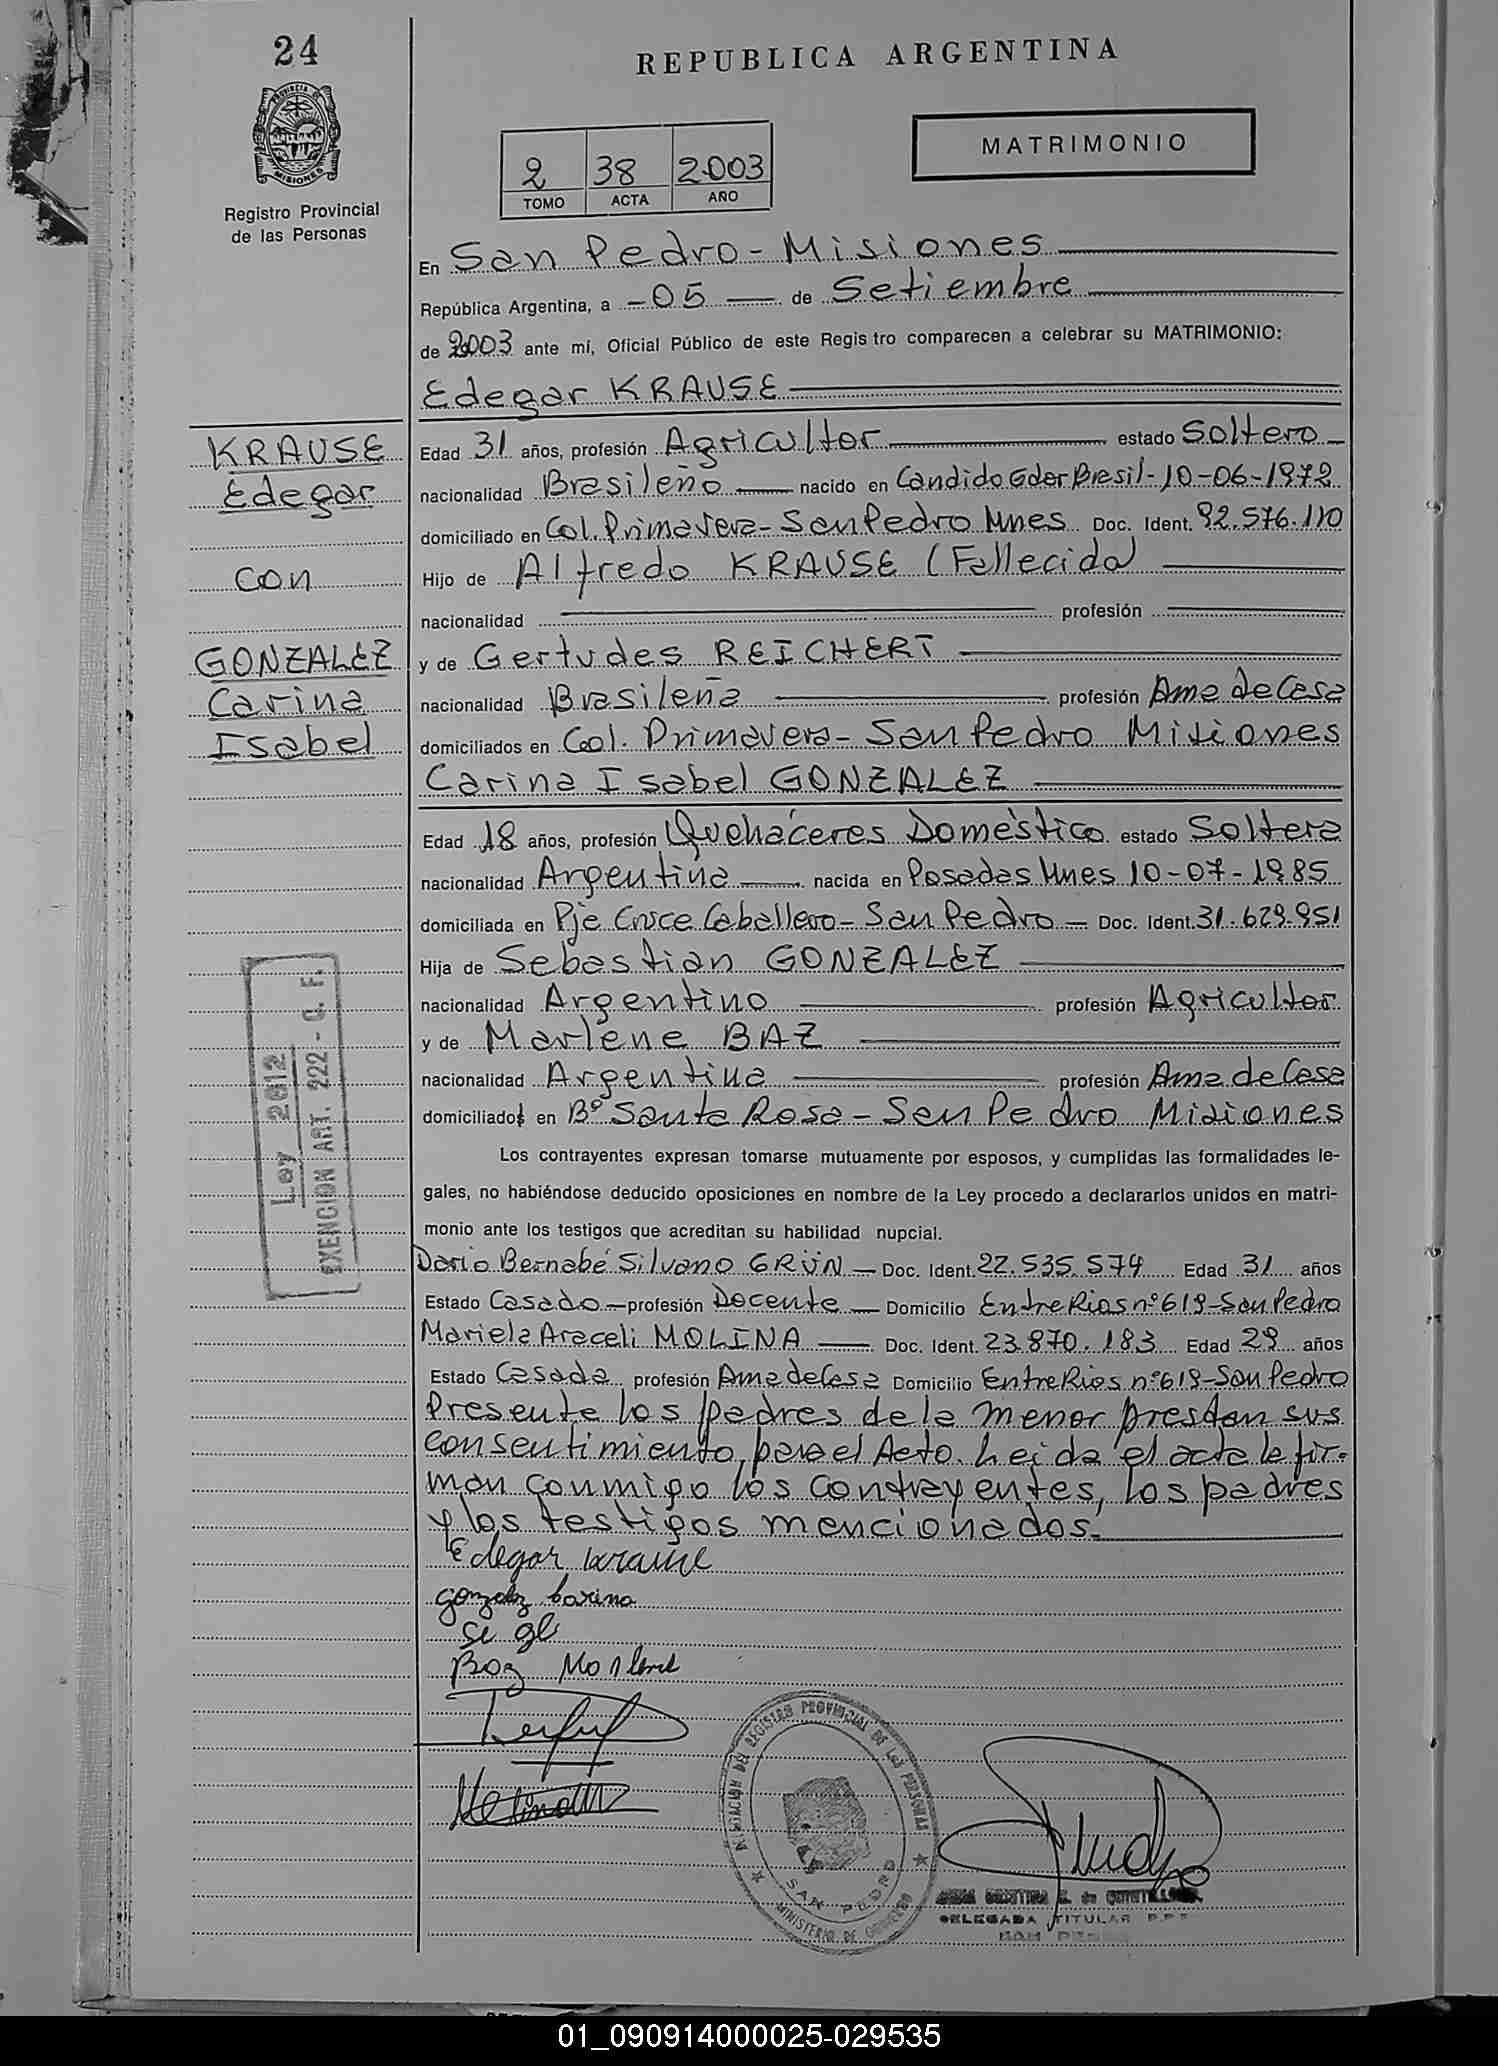 24
REPUBLICA ARGENTINA
PROVINCIA DE
MISIONES
Registro Provincial
de las Personas
MATRIMONIO
2 38 2003
TOMO ACTA AÑO
En San Pedro - Misiones
República Argentina, a - 05 — de Setiembre
de 2003 ante mí, Oficial Público de este Regis tro comparecen a celebrar su MATRIMONIO:
Edegar KRAUSE
KRAUSE
Edegar
con
GONZALEZ
Carina
Isabel
Edad 31 años, profesión Agricultor estado Soltero
nacionalidad Brasileño nacido en Candido Gdor Brasil - 10-06-1972
domiciliado en Col. Primavera - San Pedro Mnes Doc. Ident. 92.576.110
Hijo de Alfredo KRAUSE (Fallecido)
nacionalidad profesión
y de Gertudes REICHERT
nacionalidad Brasileña profesión Ama de Casa
domiciliados en Col. Primavera - San Pedro Misiones
Carina Isabel GONZALEZ
Edad 18 años, profesión Quehaceres Doméstico estado Soltera
nacionalidad Argentina nacida en Posadas Mnes 10-07-1985
domiciliada en Pje Cruce Caballero - San Pedro - Doc. Ident. 31.629.951
Hija de Sebastian GONZALEZ
nacionalidad Argentino profesión Agricultor
y de Marlene BAZ
nacionalidad Argentina profesión Ama de Casa
domiciliados en Bº Santa Rosa - San Pedro Misiones
Ley 2612
EXENCION ART. 222 - C. F.
Los contrayentes expresan tomarse mutuamente por esposos, y cumplidas las formalidades le-
gales, no habiéndose deducido oposiciones en nombre de la Ley procedo a declararlos unidos en matri-
monio ante los testigos que acreditan su habilidad nupcial.
Dario Bernabé Silvano GRÜN — Doc. Ident. 22.535.574 Edad 31 años
Estado Casado — profesión Docente — Domicilio Entre Rios nº 619 - San Pedro
Mariela Araceli MOLINA — Doc. Ident. 23.870.183 Edad 29 años
Estado Casada profesión Ama de Casa Domicilio Entre Rios nº 619 - San Pedro
Presente los padres de la menor prestan sus
consentimiento, para el Acto. Leida el acta la fir-
man conmigo los contrayentes, los padres
y los testigos mencionados.
Edegar Krause
gonzalez Carina
Baz Marlene
DELEGACION DEL REGISTRO PROVINCIAL DE LAS PERSONAS
SAN PEDRO
MINISTERIO DE GOBIERNO
DELEGADA TITULAR
SAN PEDRO
01_090914000025-029535